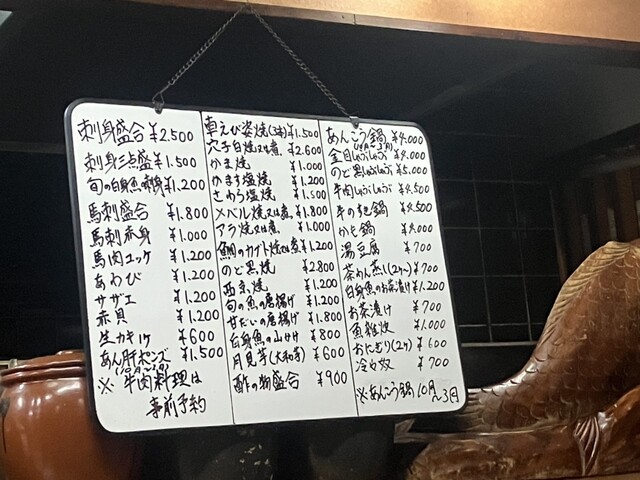 刺身盛合 ¥2.500
刺身三点盛 ¥1.500
旬の白身魚の刺身 ¥1.200
馬刺盛合 ¥1.800
馬刺赤身 ¥1.000
馬肉ユッケ ¥1.200
あわび ¥1.200
サザエ ¥1.200
赤貝 ¥1.200
生カキ1ケ ¥600
あん肝ポンズ ¥1.500
※牛肉料理は
事前予約
車えび姿焼(3本) ¥1.500
穴子白焼又は煮 ¥2.600
かま焼 ¥1.000
かます塩焼 ¥1.200
さわら塩焼 ¥1.500
メバル焼又は煮 ¥1.800
アラ焼又は煮 ¥1.000
鯛のカブト焼又は煮 ¥1.200
のど黒焼 ¥2.800
西京焼 ¥1.200
旬の魚の唐揚げ ¥1.200
甘だいの唐揚げ ¥1.800
白身魚の山かけ ¥800
月見芋(大和芋) ¥600
酢の物盛合 ¥900
あんこう鍋 ¥4.000
金目しゃぶしゃぶ ¥4.000
のど黒しゃぶしゃぶ ¥5.000
牛肉しゃぶしゃぶ ¥4.500
牛のすき鍋 ¥4.500
かも鍋 ¥4.000
湯豆腐 ¥700
茶わん蒸し(2ケ) ¥700
白身魚のお茶漬け ¥1.200
お茶漬け ¥700
魚雑炊 ¥1.000
おにぎり(2ケ) ¥600
冷奴 ¥700
※あんこう鍋10月〜3月